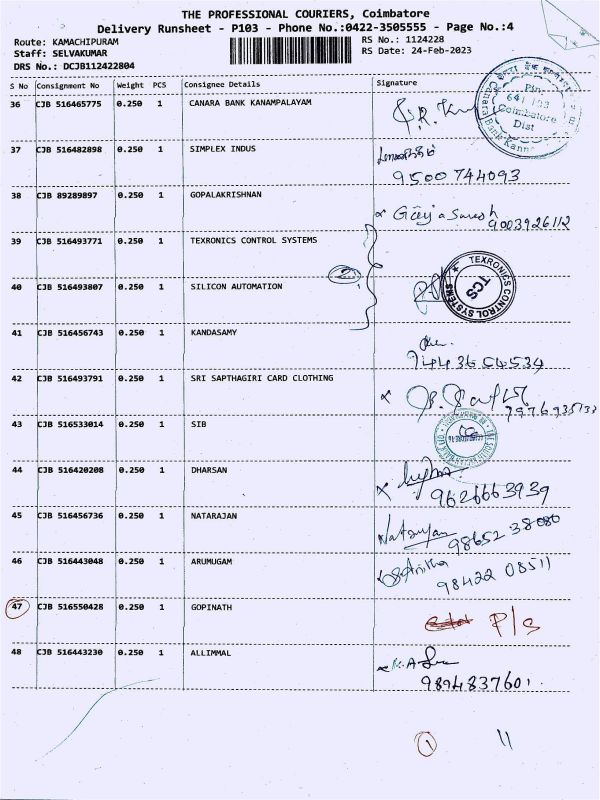 THE PROFESSIONAL COURIERS, Coimbatore
Delivery Runsheet - P103 - Phone No.:0422-3505555 - Page No.:4
Route: KAMACHIPURAM
RS No.: 1124228
Staff: SELVAKUMAR
RS Date: 24-Feb-2023
DRS No.: DCJB112422804
S No Consignment No Weight PCS Consignee Details Signature
36 CJB 516465775 0.250 1 CANARA BANK KANAMPALAYAM
Pin
Coimbatore
Dist
37 CJB 516482898 0.250 1 SIMPLEX INDUS
9500744093
38 CJB 89289897 0.250 1 GOPALAKRISHNAN
9003926112
39 CJB 516493771 0.250 1 TEXRONICS CONTROL SYSTEMS
2
40 CJB 516493807 0.250 1 SILICON AUTOMATION
TEXRONICS CONTROL SYSTEMS
TCS
41 CJB 516456743 0.250 1 KANDASAMY
42 CJB 516493791 0.250 1 SRI SAPTHAGIRI CARD CLOTHING
43 CJB 516533014 0.250 1 SIB
44 CJB 516420208 0.250 1 DHARSAN
9626663939
45 CJB 516456736 0.250 1 NATARAJAN
Natarajan 98652 38080
46 CJB 516443048 0.250 1 ARUMUGAM
98422 08511
47 CJB 516550428 0.250 1 GOPINATH
P/S
48 CJB 516443230 0.250 1 ALLIMMAL
9894837601
1 11